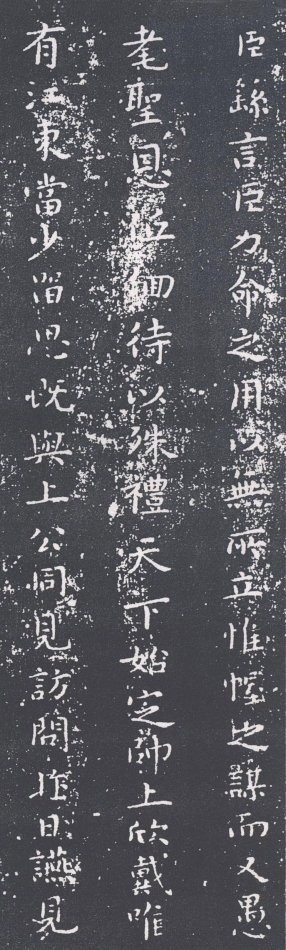 臣繇言臣力命之用以無所立惟幄之謀而又愚
耄聖恩低徊待以殊禮天下始定帥上欣戴唯
有江東當少留思既與上公同見訪問昨日讌見